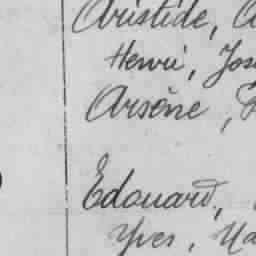 Aristide,
Henri, Jos
Arsène,
Edouard,
Yves, Ma